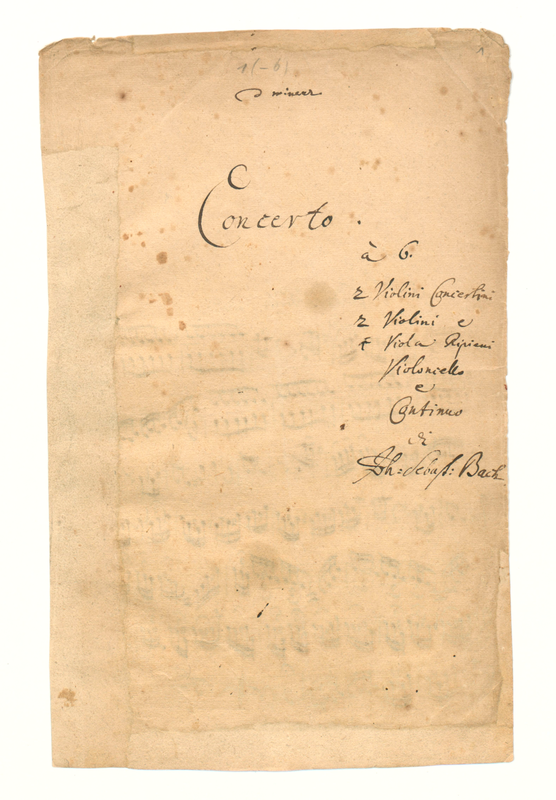 1(-6)
1.
D minor
Concerto.
à 6.
2 Violini Concertini
2 Violini e
1 Viola Ripieni
Violoncello
e
Continuo
di
Joh: Sebast: Bach